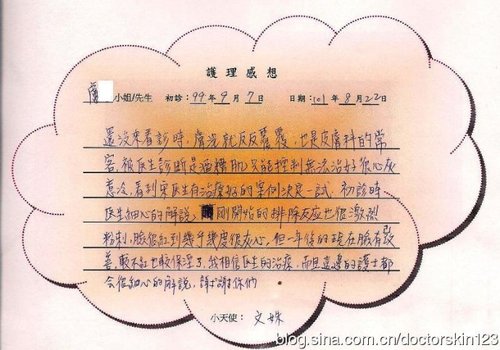 護理感想
盧 小姐/先生 初診:99年9月7日 日期:101年8月22日
還沒來看診時,膚況就反反覆覆,也是皮膚科的常
客,被医生診断是酒糟肌,只能控制無法治好很心灰
意冷,看到宋医生自治療好的案例決定一試,初診時
医生細心的解說,剛開始的排除反应也很激烈
粉刺,臉很紅到幾乎幾度很灰心,但一年後的現在臉有改
善,較不紅也較保溼了,我相信医生的治療,而且這邊的護士都
会很細心的解說,謝謝你們
小天使:文姝
blog.sina.com.cn/doctorskin123